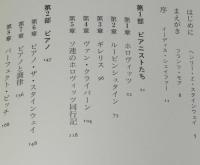 はじめに　ヘンリー・Z・スタインウェイ
まえがき　フランツ・モア
序　イーディス・シェイファー
第1部　ピアニストたち
第1章　ホロヴィッツ
第2章　ルービンシュタイン
第3章　ギレリス
第4章　ヴァン・クライバーン
第5章　ソ連のホロヴィッツ同行記
第2部　ピアノ　147
第6章　ピアノ・ザ・スタインウェイ
第7章　ピアノと調律
第8章　パーフェクト・ピッチ